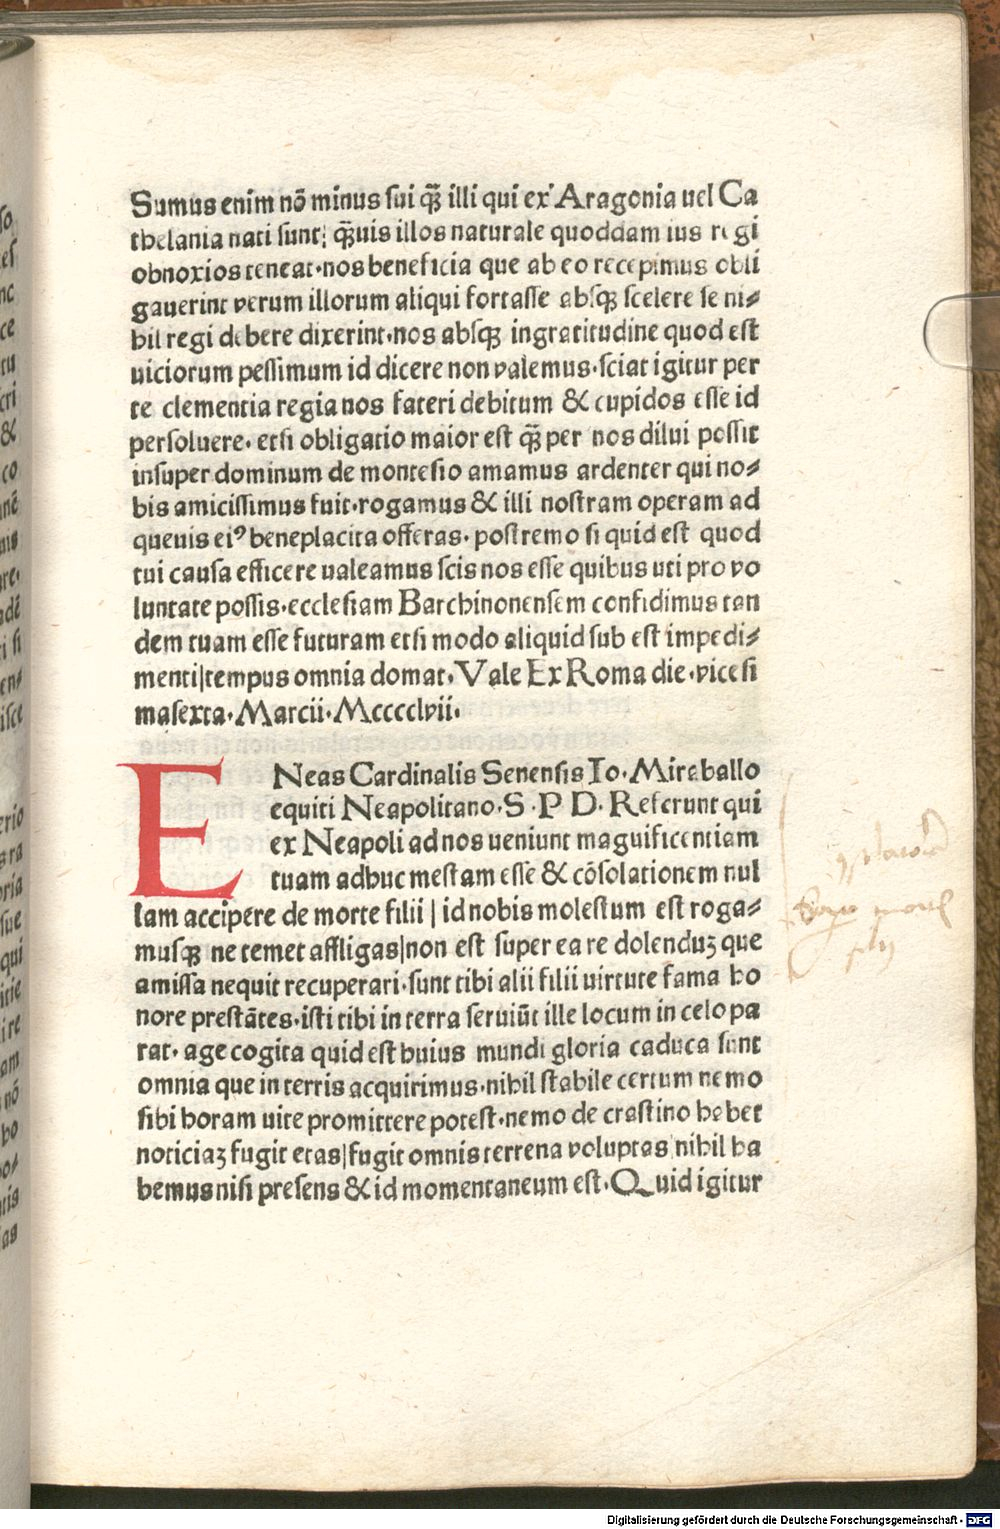 Sumus enim nō minus sui qȝ illi qui ex Aragonia uel Ca
thelania nati sunt; qȝuis illos naturale quoddam ius regi
obnoxios teneat·nos beneficia que ab eo recepimus obli
gauerint verum illorum aliqui fortasse absqȝ scelere se ni⸗
hil regi debere dixerint·nos absqȝ ingratitudine quod est
uiciorum pessimum id dicere non valemus·sciat igitur per
te clementia regia nos fateri debitum & cupidos esse id
persoluere· etsi obligatio maior est qȝ per nos dilui possit
insuper dominum de montesio amamus ardenter qui no⸗
bis amicissimus fuit·rogamus & illi nostram operam ad
queuis eiꝰ beneplacita offeras· postremo si quid est quod
tui causa efficere ualeamus scis nos esse quibus uti pro vo
luntate possis·ecclesiam Barchinonensem confidimus tan
dem tuam esse futuram etsi modo aliquid sub est impedi⸗
menti|tempus omnia domat· Vale Ex Roma die·vicesi
masexta·Marcii·Mccccclvii·
ENeas Cardinalis Senensis Io·Miraballo
equiti Neapolitano·S·P D·Referunt qui
ex Neapoli ad nos ueniunt maguificentiam
tuam adhuc mestam esse & cōsolationem nul
lam accipere de morte filii | id nobis molestum est roga⸗
musqȝ ne temet affligas|non est super ea re dolenduȝ que
amissa nequit recuperari·sunt tibi alii filii uirtute fama ho
nore prestātes·isti tibi in terra seruiūt ille locum in celo pa
rat· age cogita quid est huius mundi gloria caduca sunt
omnia que in terris acquirimus·nihil stabile certum nemo
sibi horam uite promittere potest·nemo de crastino habet
noticiaȝ fugit etas|fugit omnis terrena voluptas nihil ha
bemus nisi presens & id momentaneum est·Quid igitur
Digitalisierung gefördert durch die Deutsche Forschungsgemeinschaft - DFG